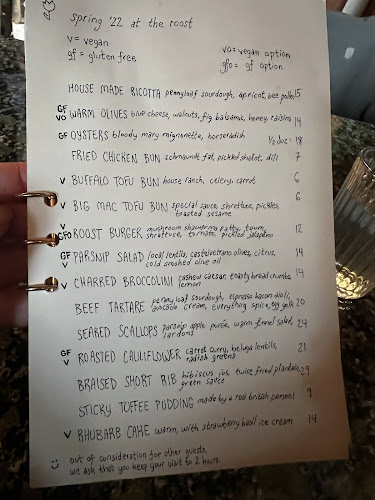 spring '22 at the roost
v = vegan
gf = gluten free
vo = vegan option
gfo = gf option
HOUSE MADE RICOTTA pennyloaf sourdough, apricot, bee pollen 15
GF VO WARM OLIVES blue cheese, walnuts, fig balsamic, honey, raisins 14
GF OYSTERS bloody mary mignonette, horseradish 1/2 doz: 18
FRIED CHICKEN BUN schmaundt fat, pickled shallot, dill 7
V BUFFALO TOFU BUN house ranch, celery, carrot 6
V BIG MAC TOFU BUN special sauce, shrettuce, pickles, 6
toasted sesame
V GFO ROOST BURGER mushroom shawarma patty, toum, 12
shrettuce, tomato, pickled jalapeño
GF V PARSNIP SALAD local lentils, castelvetrano olives, citrus, 14
cold smoked olive oil
V CHARRED BROCCOLINI cashew caesar, toasty bread crumbs 14
lemon
BEEF TARTARE penny loaf sourdough, espresso bacon aioli, 20
avocado cream, everything spice, egg yolk
SEARED SCALLOPS parsnip apple purée, warm fennel salad, 24
lardons
GF V ROASTED CAULIFLOWER carrot curry, beluga lentils, 21
radish greens
BRAISED SHORT RIB hibiscus jus, twice fried plantain, 29
green sauce
STICKY TOFFEE PUDDING made by a real british person! 9
V RHUBARB CAKE warm, with strawberry basil ice cream 14
out of consideration for other guests,
we ask that you keep your visit to 2 hours